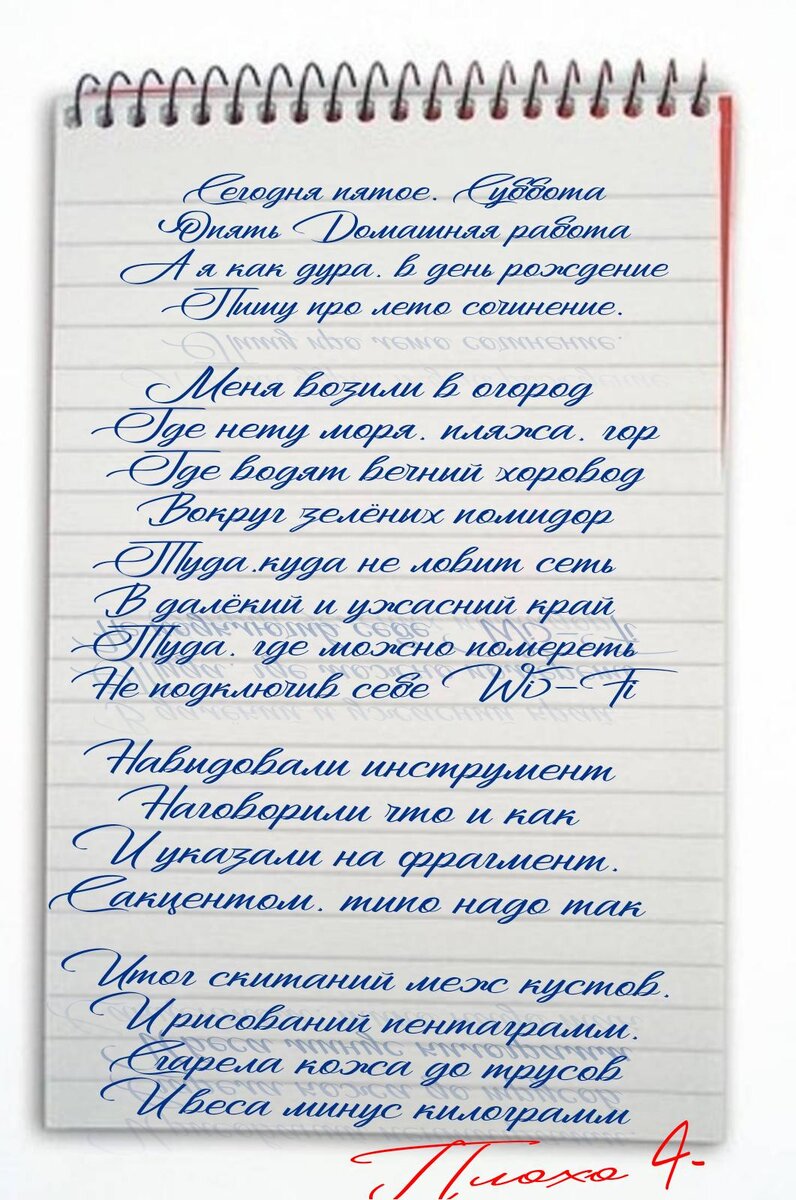 Сегодня пятое. Суббота
Опять Домашняя работа
А я как дура. в день рождение
Пишу про лето сочинение.
Меня возили в огород
Где нету моря. пляжа. гор
Где водят вечний хоровод
Вокруг зелёних помидор
Туда.куда не ловит сеть
В далёкий и ужасний край
Туда. где можно помереть
Не подключив себе Wi-Fi
Навидовали инструмент
Наговорили что и как
И указали на фрагмент.
Сакцентом. типо надо так
Итог скитаний меж кустов.
И рисований пентаграмм.
Сгарела кожа до трусов
И веса минус килограмм
Плохо 4-